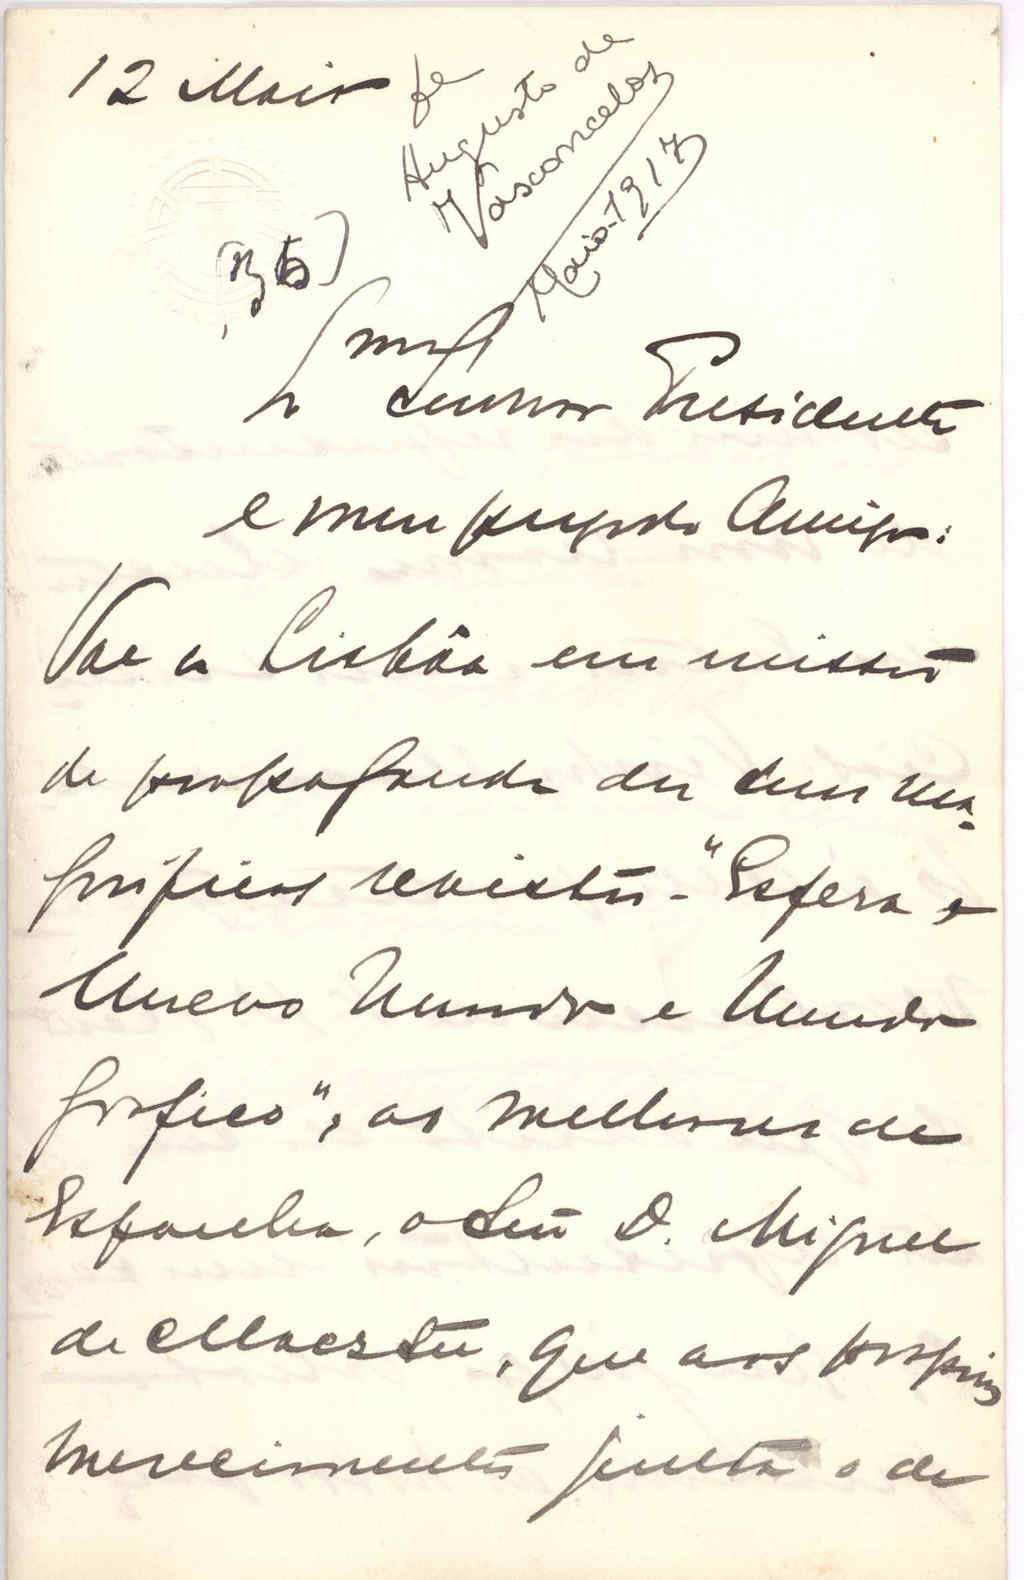 12 Maio
de
Augusto de
Vasconcelos
Maio-1917
Senhor Presidente
e meu prezado Amigo:
Vae a Lisbôa em missão
de propaganda das suas ma-
gnificas revistas - "Esfera e
Nuevo Mundo e Mundo
Grafico", as melhores de
Espanha, o Snr D. Miguel
de Maeztu, que aos proprios
merecimentos junta o de